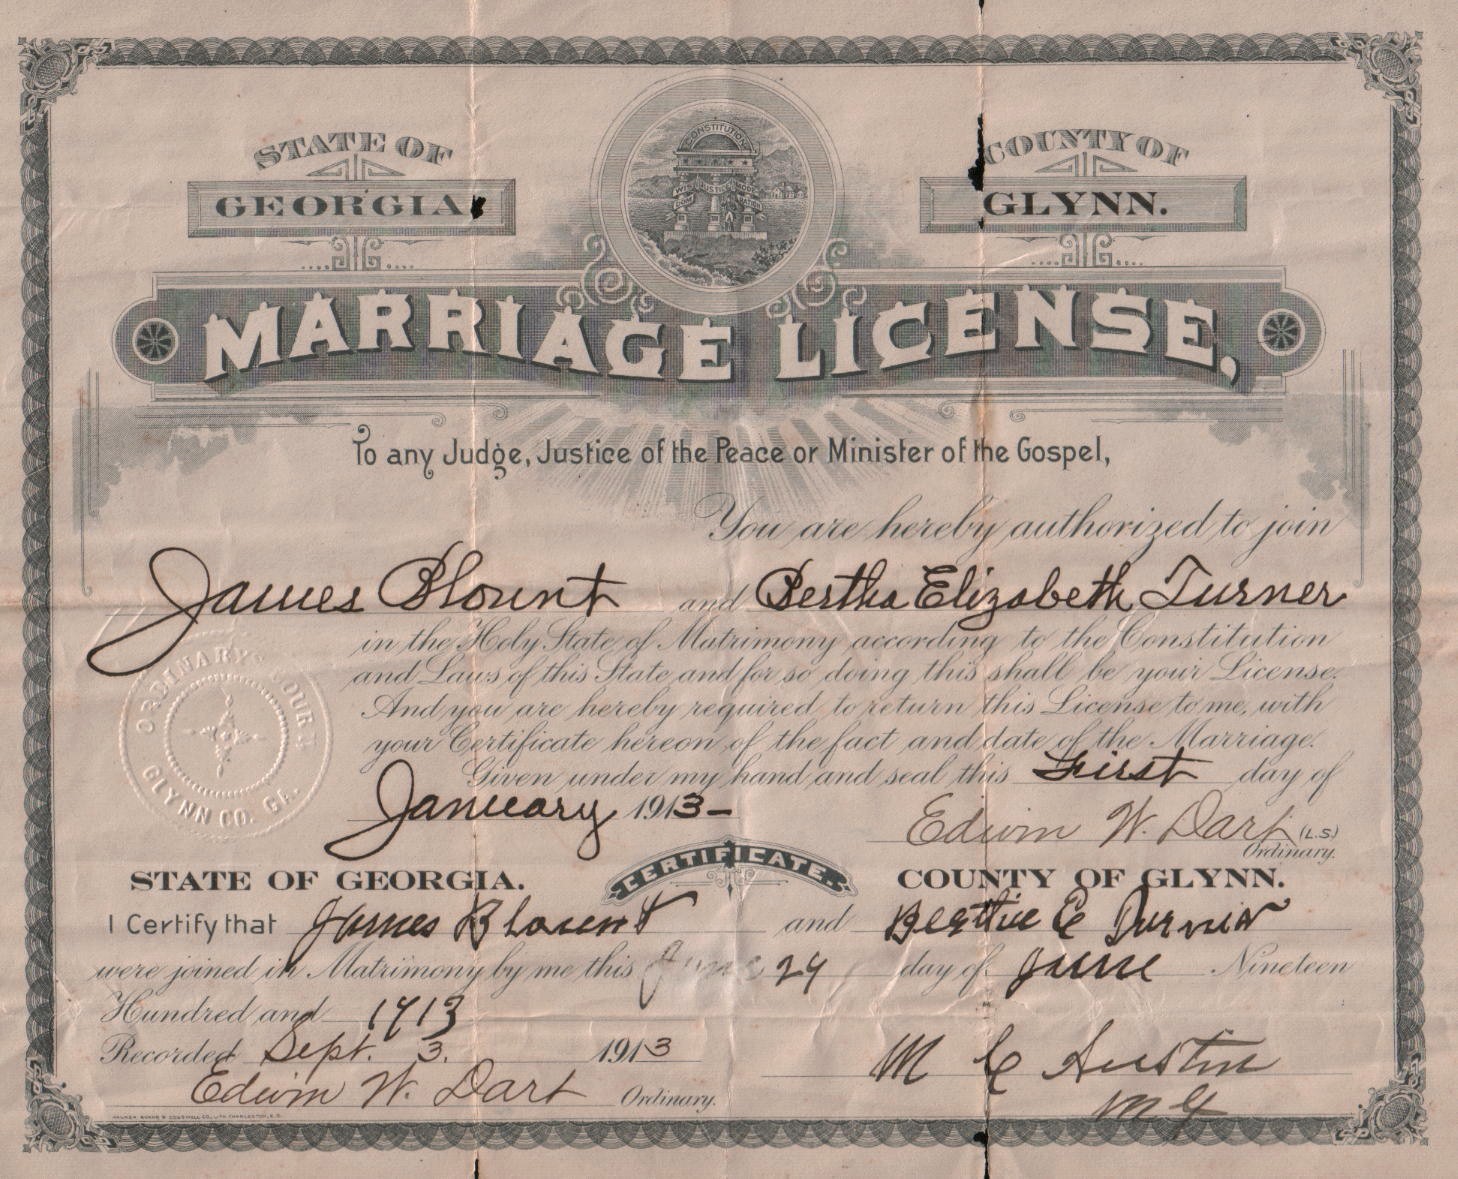 STATE OF
GEORGIA.
CONSTITUTION
WISDOM JUSTICE MODERATION
COUNTY OF
GLYNN.
MARRIAGE LICENSE,
To any Judge, Justice of the Peace or Minister of the Gospel,
You are hereby authorized to join
James Blount and Bertha Elizabeth Turner
in the Holy State of Matrimony according to the Constitution
and Laws of this State and for so doing this shall be your License.
And you are hereby required to return this License to me, with
your Certificate hereon of the fact and date of the Marriage.
Given under my hand and seal this First day of
January 1913-
Edwin W. Dart (L.S.)
Ordinary.
ORDINARY COURT
GLYNN CO. GA.
CERTIFICATE.
STATE OF GEORGIA. COUNTY OF GLYNN.
I Certify that James Blount and Berthie E Turner
were joined in Matrimony by me this June 24 day of June Nineteen
Hundred and 1913
Recorded Sept. 3. 1913
M C Austin
Edwin W. Dart Ordinary.
M G
WALKER, EVANS & COGSWELL CO., LITH. CHARLESTON, S.C.